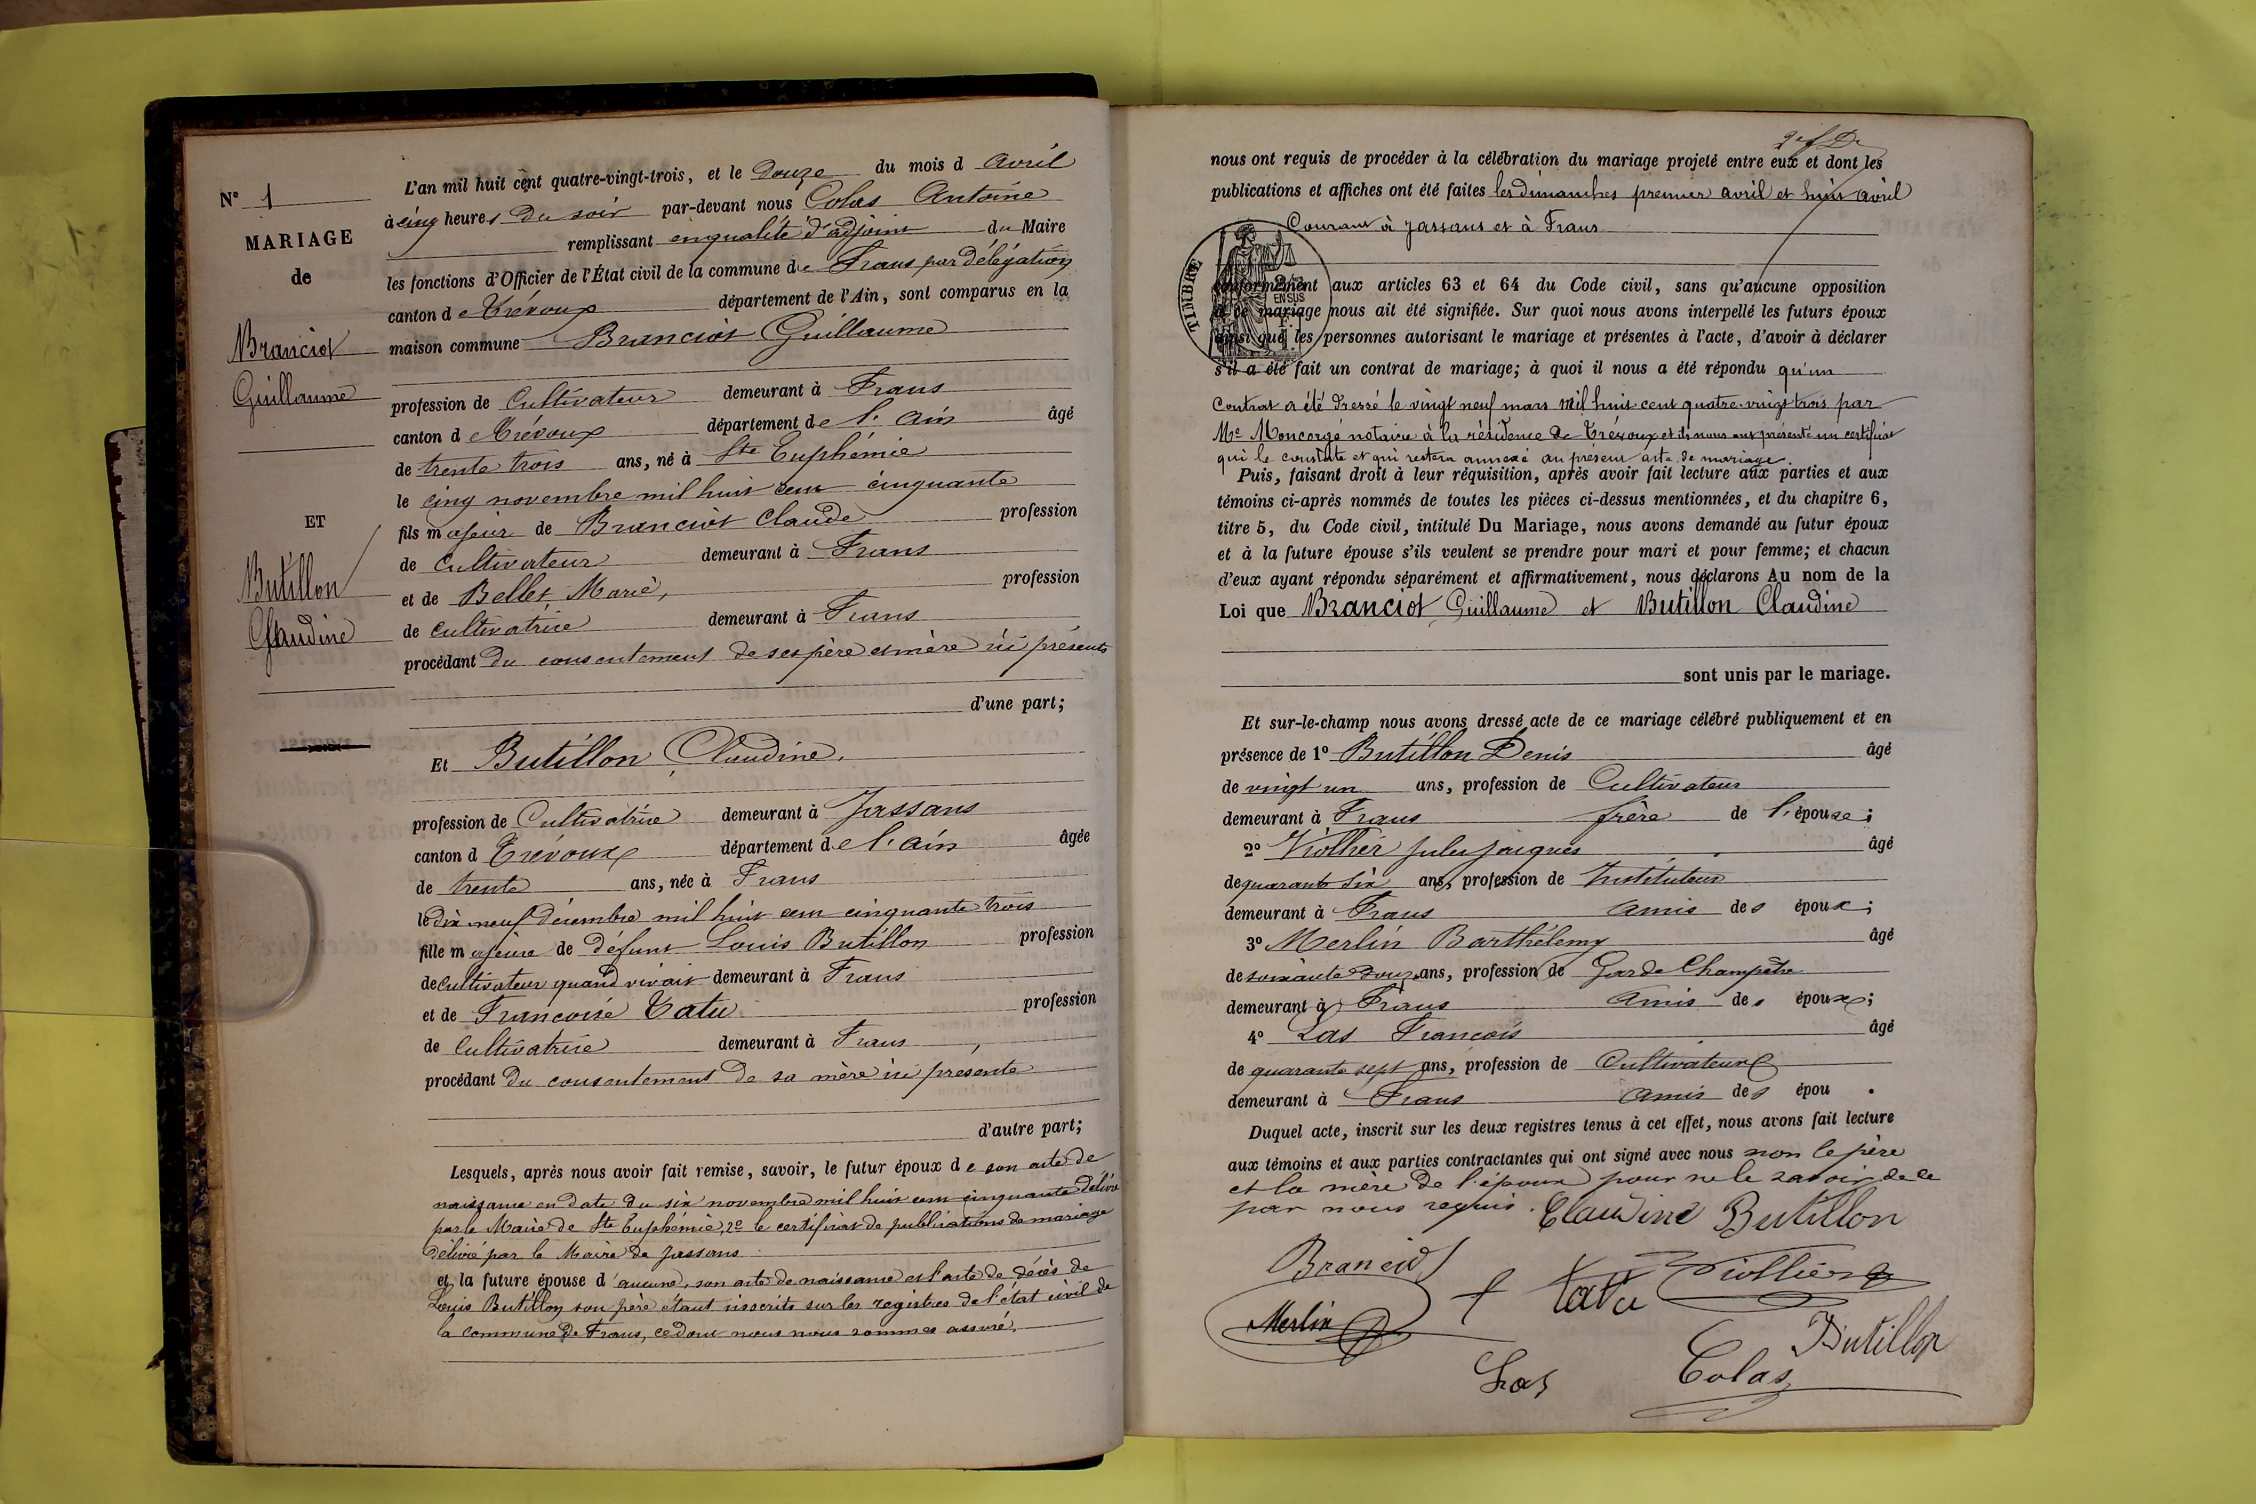 N° 1
MARIAGE
de
Branciot
Guillaume
ET
Butillon
Claudine
L'an mil huit cent quatre-vingt-trois, et le douze du mois d avril
à cinq heures du soir par-devant nous Colas Antoine
remplissant en qualité d'adjoint du Maire
les fonctions d'Officier de l'État civil de la commune de Frans par délégation
canton d Trévoux département de l'Ain, sont comparus en la
maison commune Branciot Guillaume
profession de Cultivateur demeurant à Frans
canton d Trévoux département de l'Ain âgé
de trente trois ans, né à Ste Euphémie
le cinq novembre mil huit cent cinquante
fils majeur de Branciot Claude profession
de Cultivateur demeurant à Frans
et de Bellet Marie, profession
de cultivatrice demeurant à Frans
procédant du consentement de ses père et mère ici présents
d'une part;
Et Butillon Claudine.
profession de Cultivatrice demeurant à Jassans
canton d Trévoux département de l'Ain âgée
de trente ans, née à Frans
le dix neuf décembre mil huit cent cinquante trois
fille majeure de défunt Louis Butillon profession
de cultivateur quand vivait demeurant à Frans
et de Francoise Tatu profession
de Cultivatrice demeurant à Frans
procédant du consentement de sa mère ici présente
d'autre part;
Lesquels, après nous avoir fait remise, savoir, le futur époux de son acte de
naissance en date du six novembre mil huit cent cinquante délivré
par le Maire de Ste Euphémie, 2° le certificat de publications de mariage
délivré par le Maire de Jassans
et la future épouse d'aucune, son acte de naissance et l'acte de décès de
Louis Butillon son père étant inscrits sur les registres de l'état civil de
la commune de Frans, ce dont nous nous sommes assuré.
nous ont requis de procéder à la célébration du mariage projeté entre eux et dont les
publications et affiches ont été faites les dimanches premier avril et huit avril
Courant à Jassans et à Frans
TIMBRE
EN SUS
conformément aux articles 63 et 64 du Code civil, sans qu'aucune opposition
à ce mariage nous ait été signifiée. Sur quoi nous avons interpellé les futurs époux
ainsi que les personnes autorisant le mariage et présentes à l'acte, d'avoir à déclarer
s'il a été fait un contrat de mariage; à quoi il nous a été répondu qu'un
Contrat a été dressé le vingt neuf mars mil huit cent quatre-vingt trois par
Me Moncorgé notaire à la résidence de Trévoux et ils nous ont présenté un certificat
qui le constate et qui restera annexé au présent acte de mariage.
Puis, faisant droit à leur réquisition, après avoir fait lecture aux parties et aux
témoins ci-après nommés de toutes les pièces ci-dessus mentionnées, et du chapitre 6,
titre 5, du Code civil, intitulé Du Mariage, nous avons demandé au futur époux
et à la future épouse s'ils veulent se prendre pour mari et pour femme; et chacun
d'eux ayant répondu séparément et affirmativement, nous déclarons Au nom de la
Loi que Branciot Guillaume et Butillon Claudine
sont unis par le mariage.
Et sur-le-champ nous avons dressé acte de ce mariage célébré publiquement et en
présence de 1° Butillon Denis âgé
de vingt un ans, profession de Cultivateur
demeurant à Frans frère de l'épouse;
2° Viollier Jules Jacques âgé
de quarante six ans, profession de Instituteur
demeurant à Frans amis des époux;
3° Merlin Barthélemy âgé
de soixante douze ans, profession de Garde Champêtre
demeurant à Frans Amis des époux;
4° Las Francois âgé
de quarante sept ans, profession de Cultivateur
demeurant à Frans amis des épou .
Duquel acte, inscrit sur les deux registres tenus à cet effet, nous avons fait lecture
aux témoins et aux parties contractantes qui ont signé avec nous non le père
et la mère de l'époux pour ne le savoir de ce
par nous requis. Claudine Butillon
Branciot
tatu Viollier
Merlin
Butillon
Las Colas